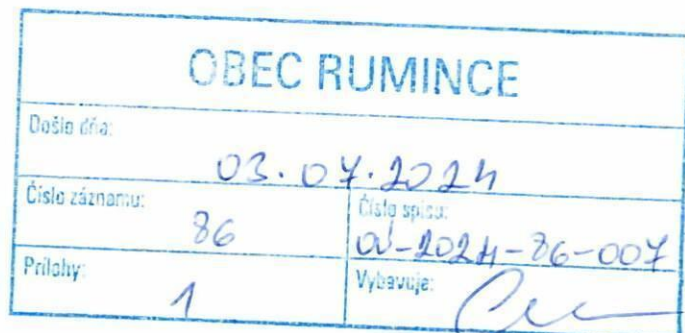 OBEC RUMINCE
Došlo dňa:
03.07.2024
Číslo záznamu:
86
Číslo spisu:
OÚ-2024-86-007
Prílohy:
1
Vybavuje: